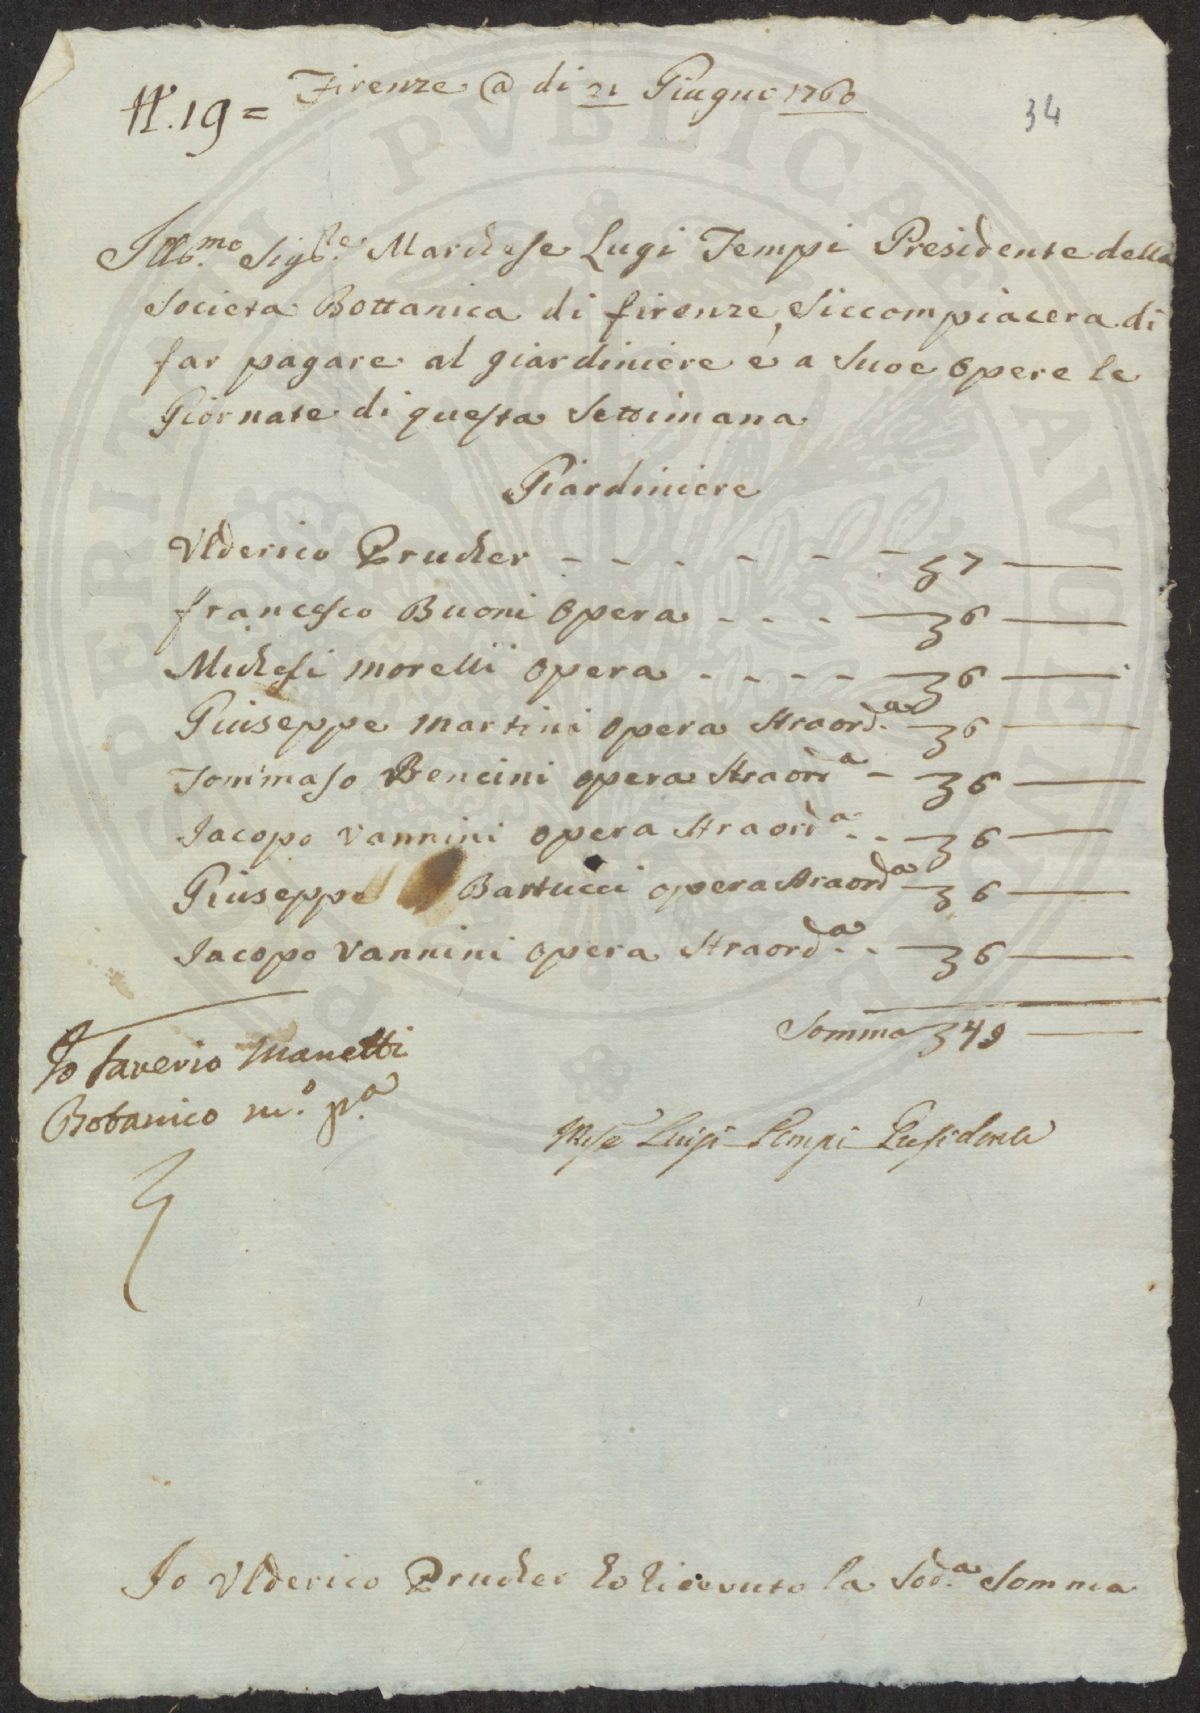 N. 19 =
Firenze @ di 21 Giugno 1760
34
Illmo. Sigre. Marchese Lugi Tempi Presidente della
Societa Bottanica di firenze, Siccompiacera di
far pagare al giardiniere e a Suoe opere le
Giornate di questa Settimana
Giardiniere
Ulderico Prucher - - - - - - 7
francesco Buoni opera - - - 6
Michesi morelli opera - - - - 6
Giuseppe martini opera straorda. 6
Tommaso Bencini opera straorda - 6
Jacopo vannini opera straorda. - 6
Giuseppe Bartucci opera straorda 6
Jacopo vannini opera straorda. - 6
Somma 49
Io Saverio Manetti
Botanico m.o p.a
Mse Luigi Tempi Presidente
Io Ulderico Prucher ho ricevuto la Sod.a Somma
PERITATI PVBLICAE AVGENDAE